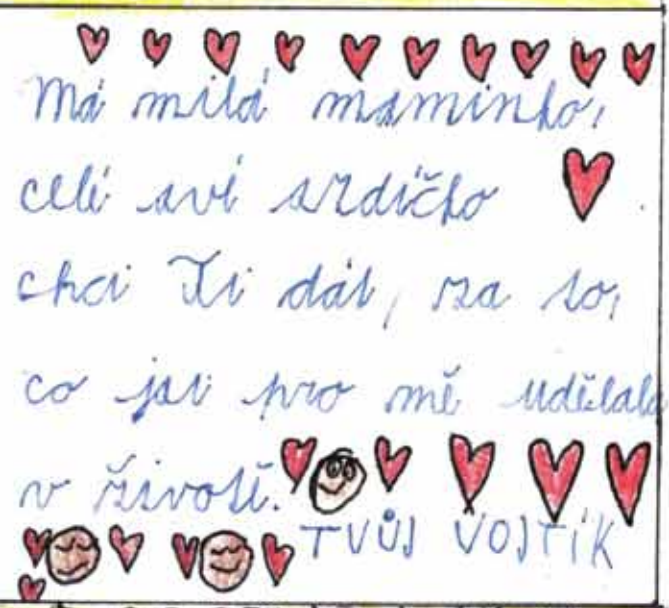 Má milá maminko,
celé své srdíčko
chci Ti dát, za to,
co jsi pro mě udělala
v životě.
TVŮJ VOJTÍK